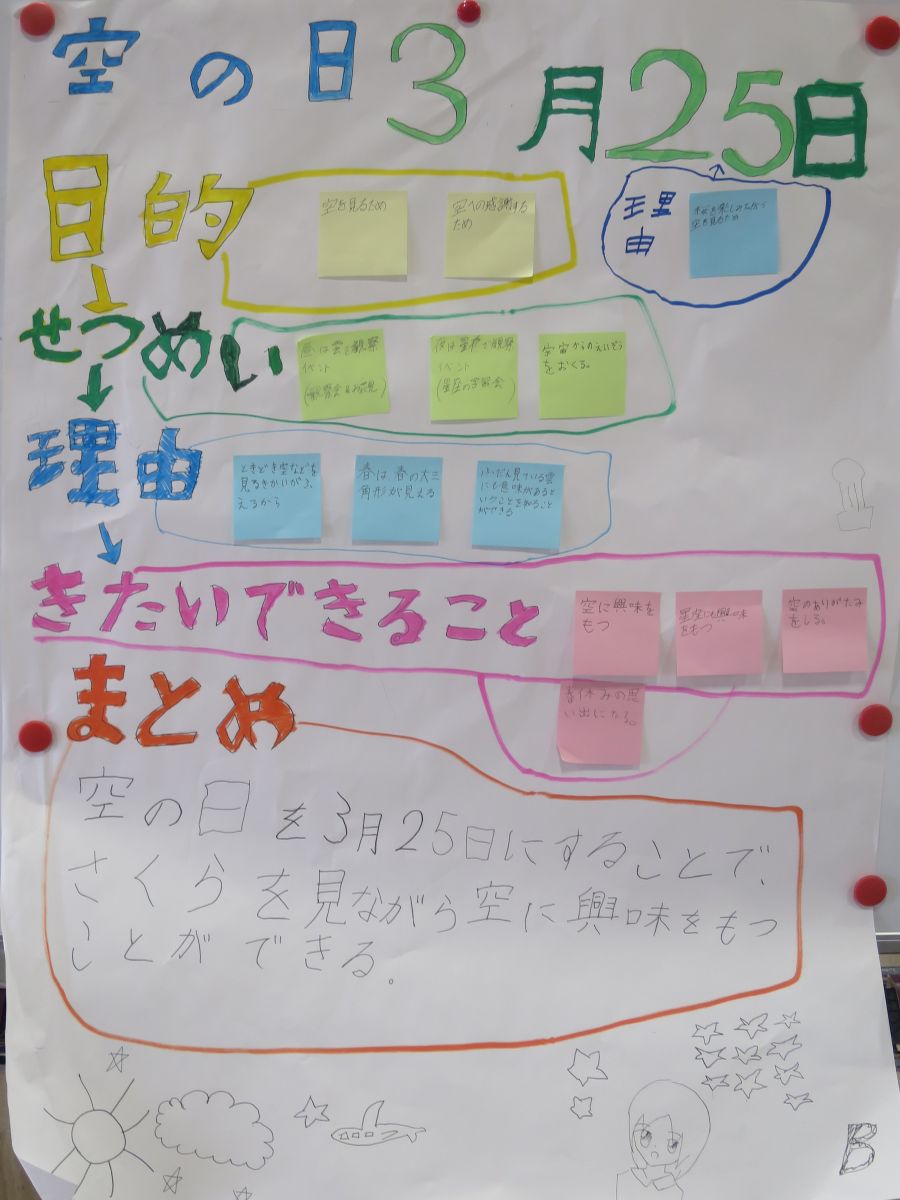 空の日 3月25日
目的
空を見るため
空への感謝する
ため
理
由
桜を楽しみながら
空を見るため
せつめい
昼は雲を観察
イベント
夜は星座を観察
イベント
(星座の学習会)
宇宙からのえいぞう
をおくる。
理由
ときどき空などを
見るきかいがふ
えるから
春は、春の大三
角形が見える
ふだん見ている雲
にも意味があると
いうことを知ること
ができる
きたいできること
空に興味を
もつ
星座にも興味
をもつ
空のありがたみ
をしる。
春休みの思
い出になる。
まとめ
空の日を3月25日にすることで、
さくらを見ながら空に興味をもつ
ことができる。
B